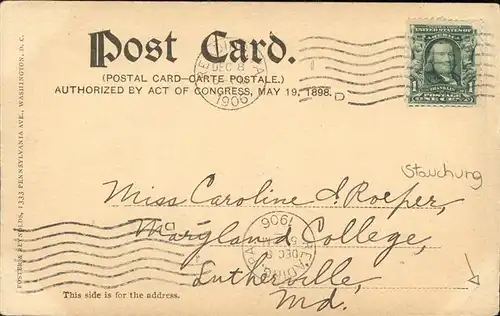 Post Card.
(POSTAL CARD—CARTE POSTALE.)
AUTHORIZED BY ACT OF CONGRESS, MAY 19, 1898.
DEC 8
1906
D
UNITED STATES OF AMERICA
1 FRANKLIN 1
ONE CENT
Stauchung
Miss Caroline I. Roeper,
Maryland College,
Lutherville,
Md.
READING
DEC 8
1906
D
This side is for the address.
FOSTER & REYNOLDS, 1333 PENNSYLVANIA AVE., WASHINGTON, D. C.